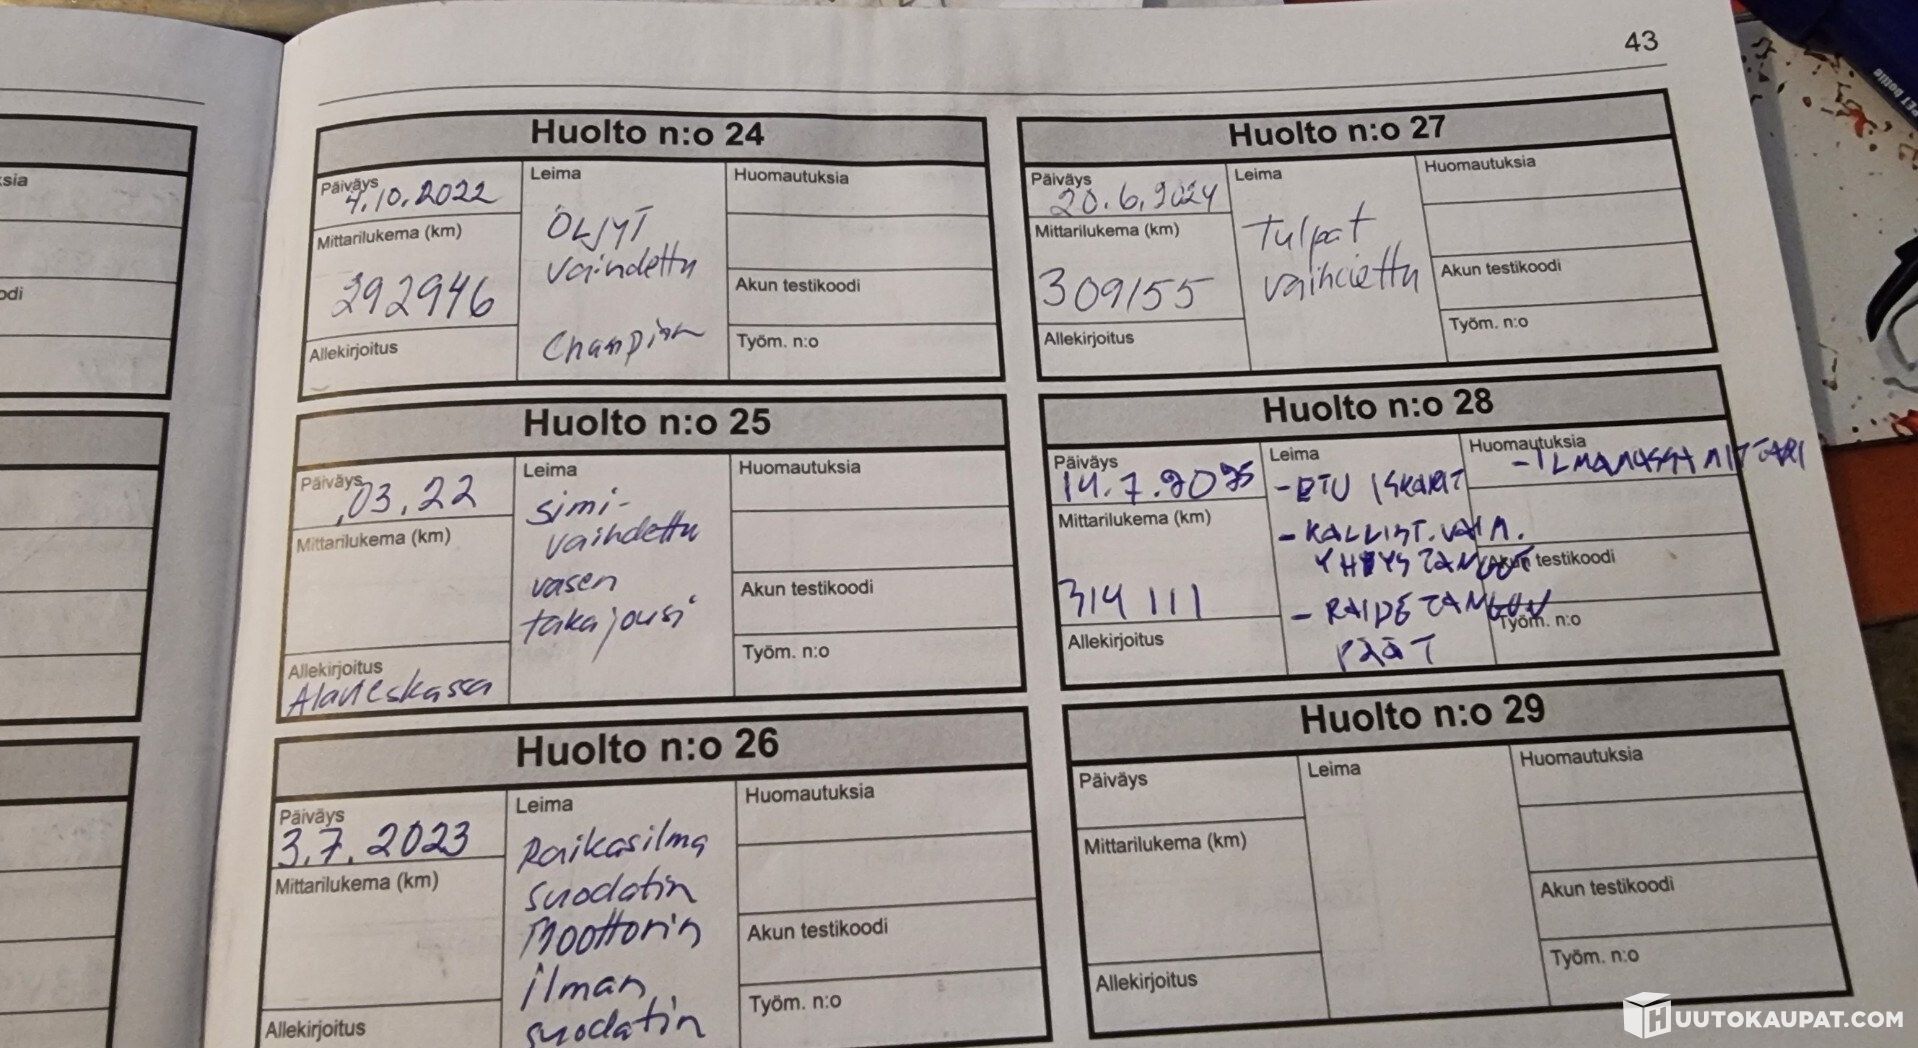 43
PET Bottle
sia
odi
Huolto n:o 24
Päiväys
4.10.2022
Mittarilukema (km)
292946
Allekirjoitus
Leima
ÖLJYT
vaihdettu
Champion
Huomautuksia
Akun testikoodi
Työm. n:o
Huolto n:o 25
Päiväys
.03.22
Mittarilukema (km)
Allekirjoitus
Alavieskassa
Leima
simi-
vaihdettu
vasen
takajousi
Huomautuksia
Akun testikoodi
Työm. n:o
Huolto n:o 26
Päiväys
3.7.2023
Mittarilukema (km)
Allekirjoitus
Leima
Raikasilma
suodatin
Moottorin
ilman
suodatin
Huomautuksia
Akun testikoodi
Työm. n:o
Huolto n:o 27
Päiväys
20.6.2024
Mittarilukema (km)
309155
Allekirjoitus
Leima
Tulpat
vaihdettu
Huomautuksia
Akun testikoodi
Työm. n:o
Huolto n:o 28
Päiväys
14.7.2025
Mittarilukema (km)
314111
Allekirjoitus
Leima
- ETU ISKARIT
- KALLIST. VAIM.
YHDYSTANGOT
- RAIDETANGON
PÄÄT
Huomautuksia
- ILMAMASSAMITTARI
Akun testikoodi
Työm. n:o
Huolto n:o 29
Päiväys
Mittarilukema (km)
Allekirjoitus
Leima
Huomautuksia
Akun testikoodi
Työm. n:o
HUUTOKAUPAT.COM